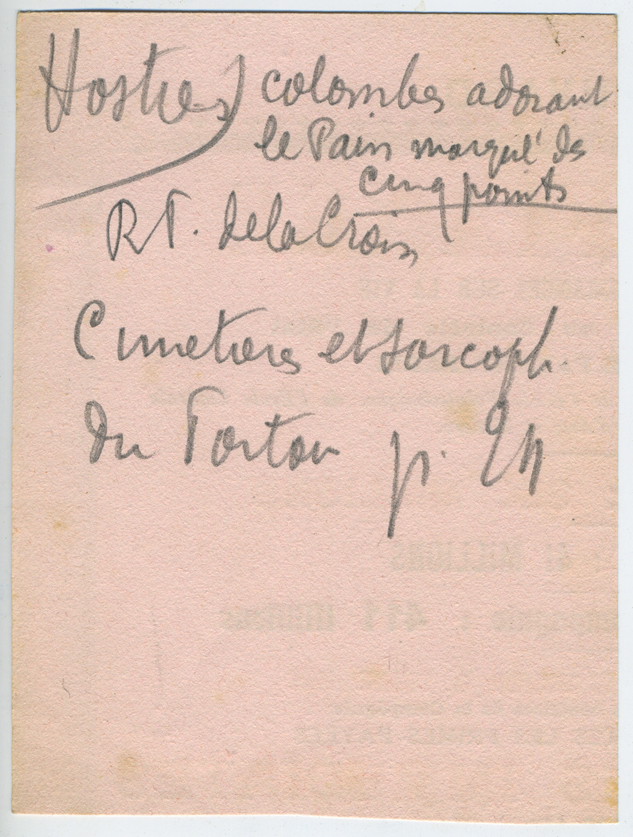 Hosties) colombes adorant
le Pain marqué de
cinq points
R.P. de la Croix
Cimetières et sarcoph.
du Poitou p. 24